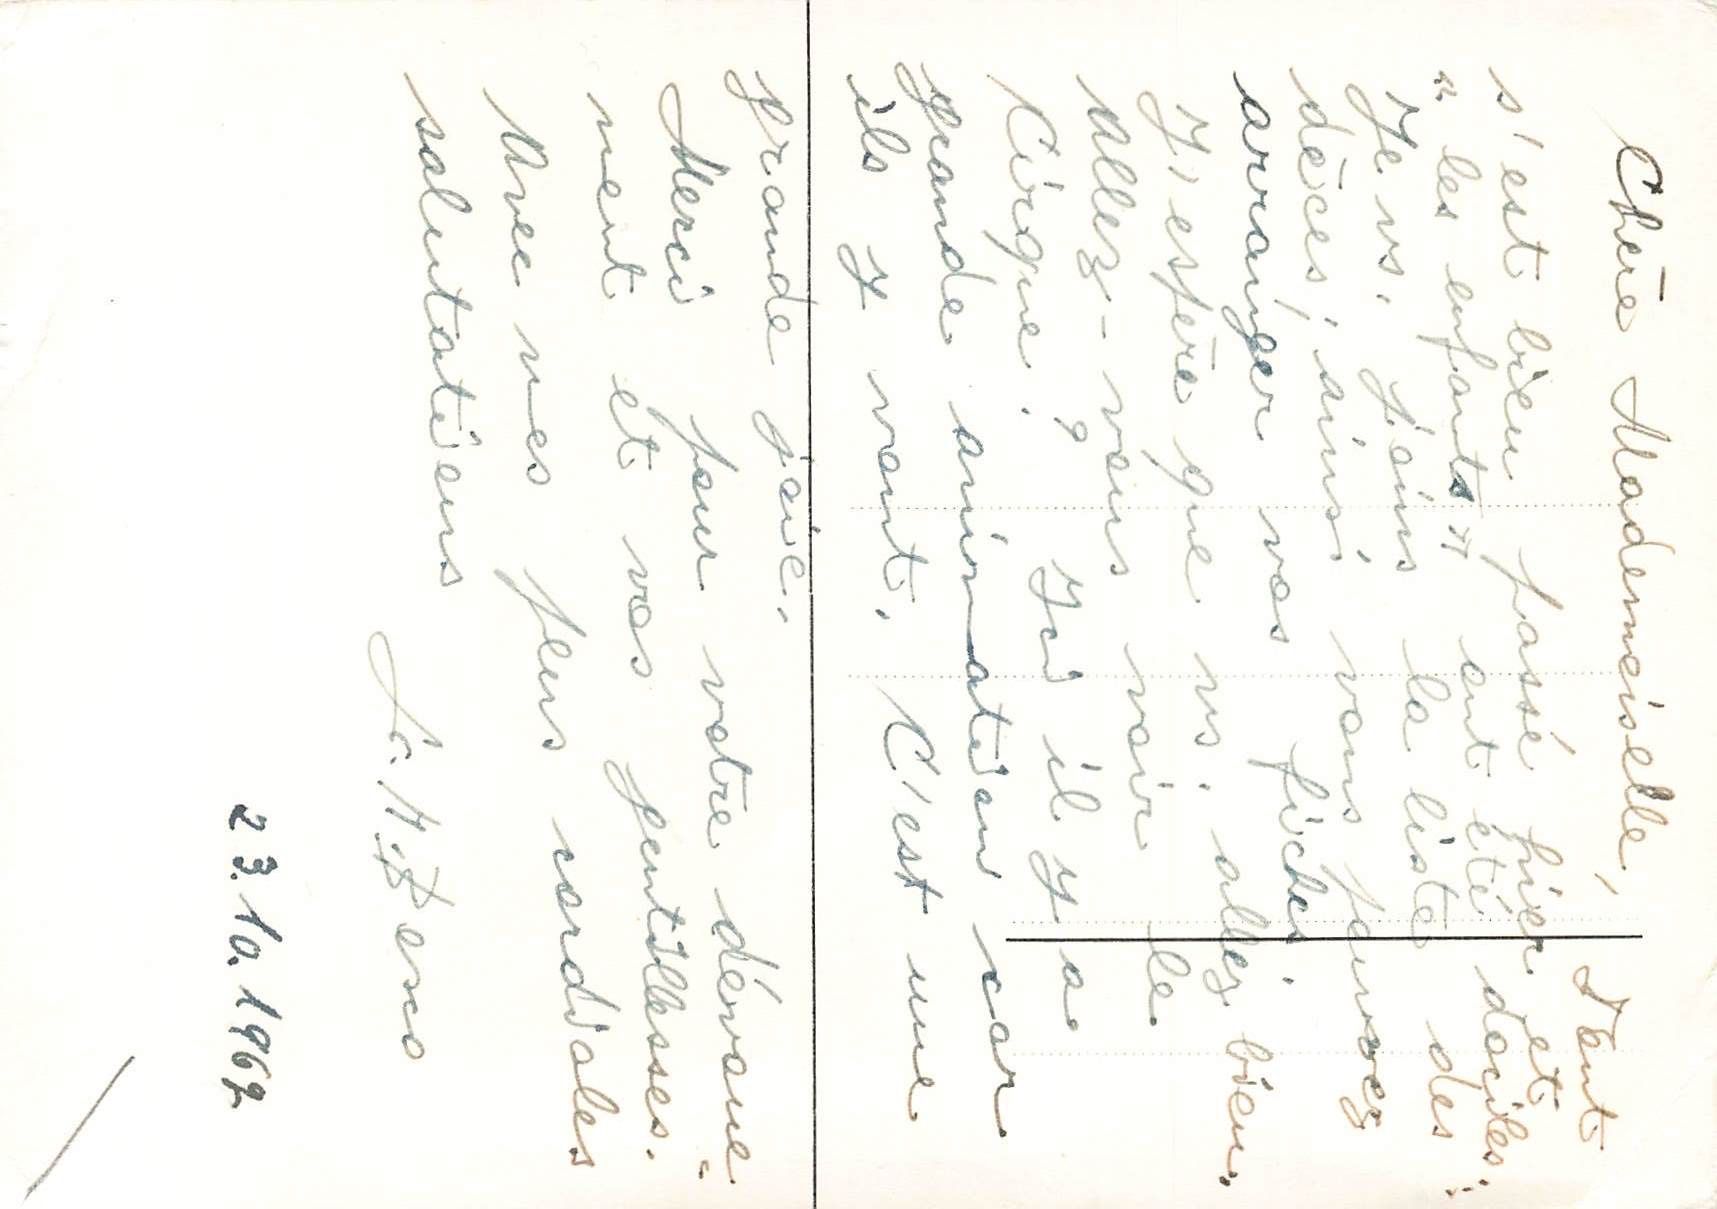 Chère Mademoiselle,
Tout
s'est bien passé hier et
"les enfants" ont été dociles!
Je vs. joins la liste des
décès; ainsi vous pouvez
arranger vos fiches.
J'espère que vs. allez bien.
Allez-vous voir le
Cirque? Ici il y a
grande animation car
ils y vont. C'est une
grande joie.
Merci pour votre dévoue-
ment et vos gentillesses.
Avec mes plus cordiales
salutations
23.10.1962